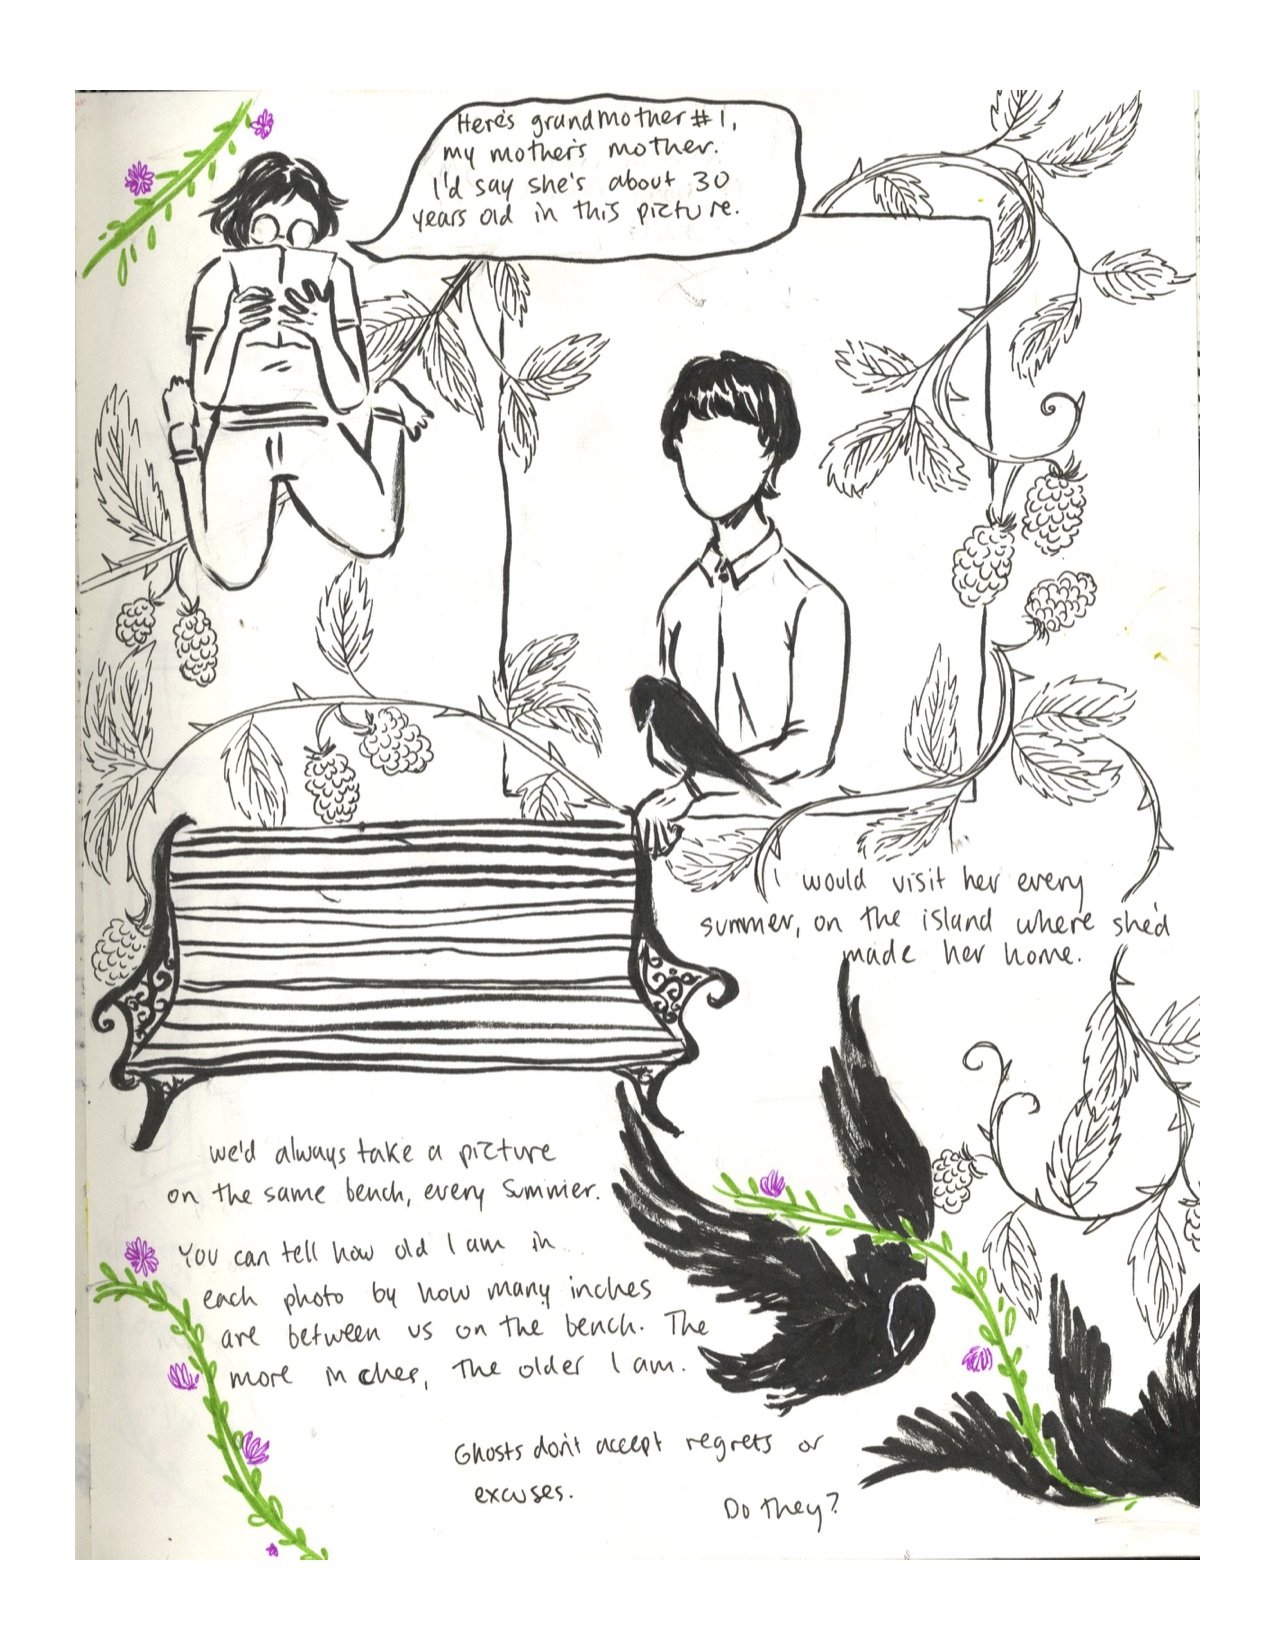 Here's grandmother #1,
my mother's mother.
I'd say she's about 30
years old in this picture.
I would visit her every
summer, on the island where she'd
made her home.
we'd always take a picture
on the same bench, every summer.
You can tell how old I am in
each photo by how many inches
are between us on the bench. The
more inches, the older I am.
Ghosts don't accept regrets or
excuses.
Do they?